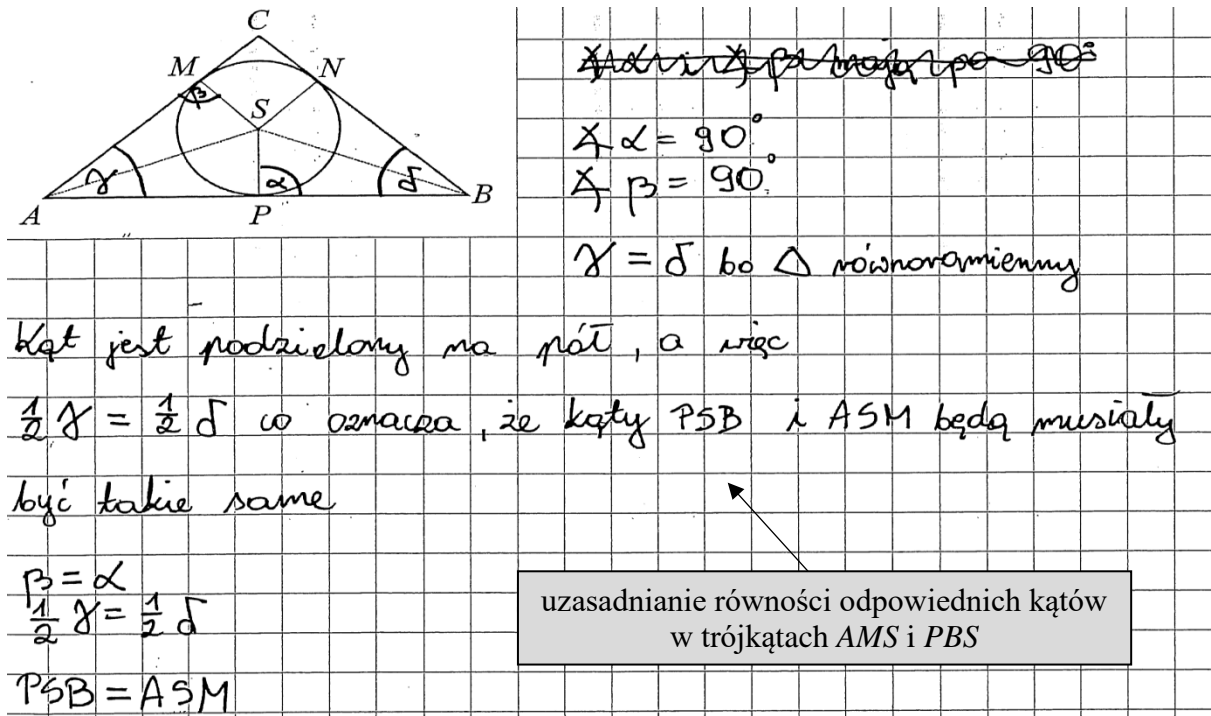 C
M N
β
S
γ α δ
A P B
∢α i ∢β mają po 90°
∢ α = 90°
∢ β = 90°
γ = δ bo △ równoramienny
Kąt jest podzielony na pół, a więc
1/2 γ = 1/2 δ co oznacza, że kąty PSB i ASM będą musiały
być takie same
β = α
1/2 γ = 1/2 δ
PSB = ASM
uzasadnianie równości odpowiednich kątów
w trójkątach AMS i PBS